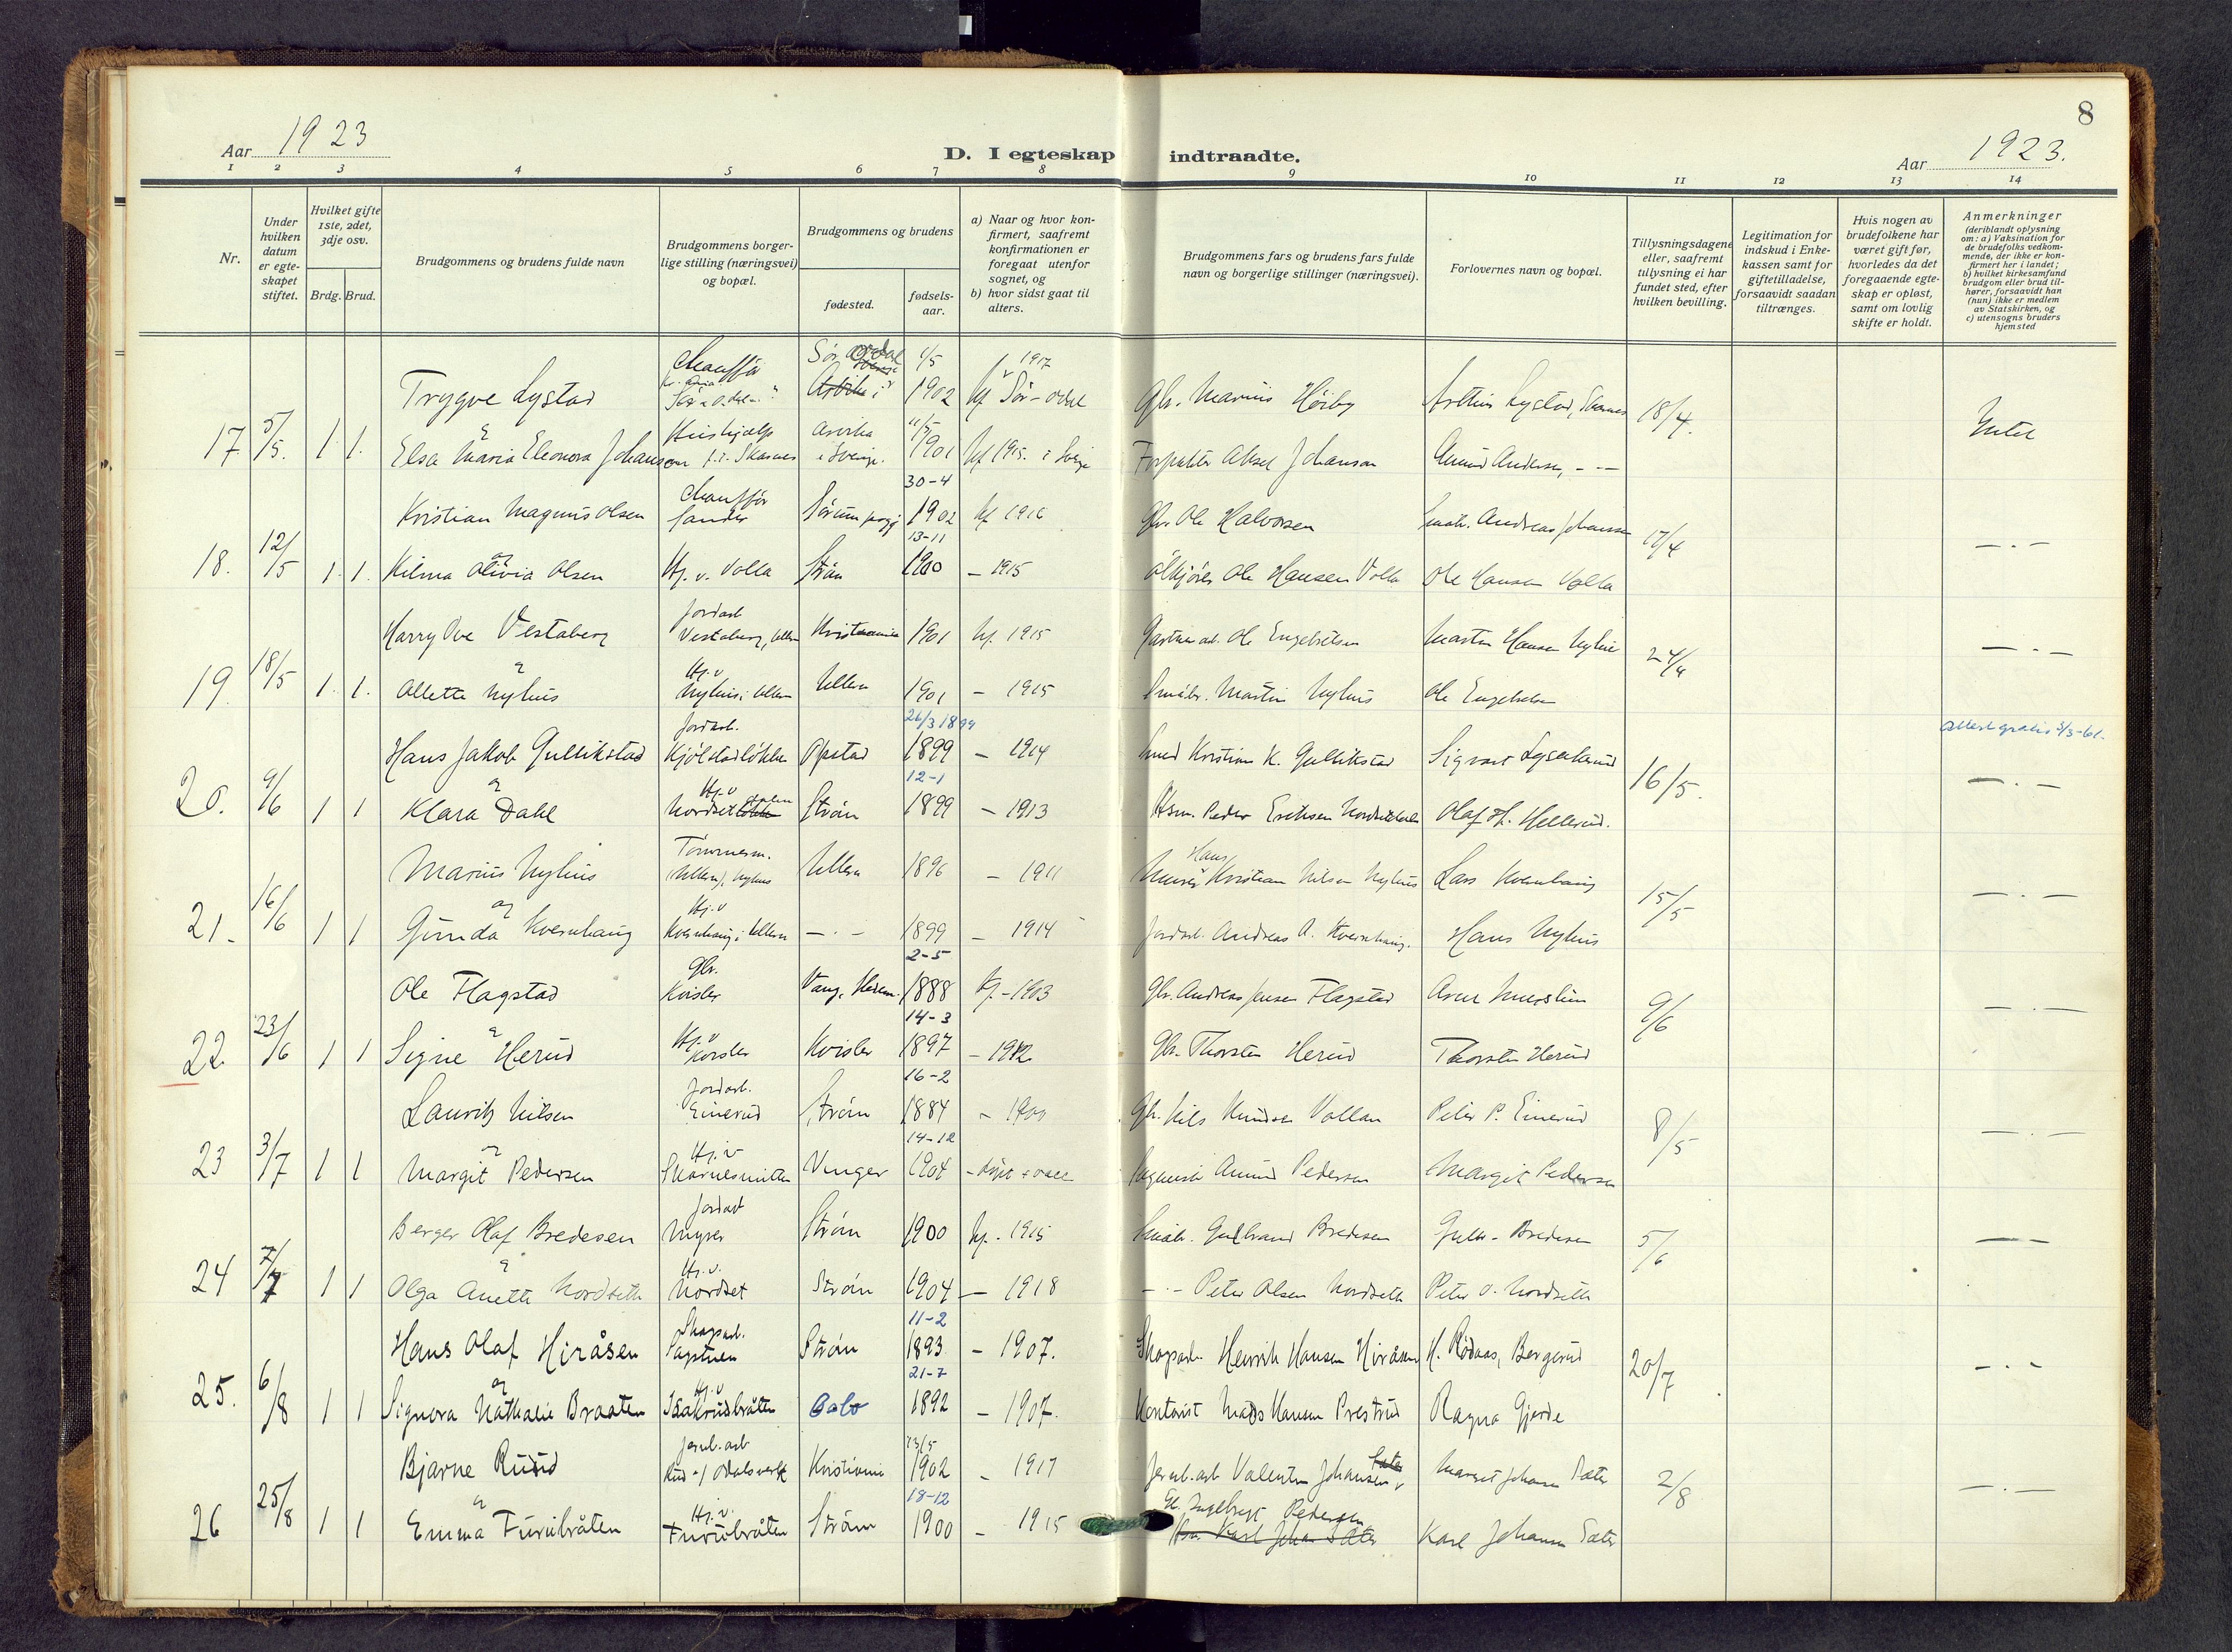 8
Aar 1923
D. I egteskap indtraadte.
Aar 1923.
1 2 3 4 5 6 7 8 9 10 11 12 13 14
Nr.
Under hvilken datum er egteskapet stiftet.
Hvilket gifte 1ste, 2det, 3dje osv.
Brdg. Brud.
Brudgommens og brudens fulde navn
Brudgommens borgerlige stilling (næringsvei) og bopæl.
Brudgommens og brudens
fødested.
fødselsaar.
a) Naar og hvor konfirmert, saafremt konfirmationen er foregaat utenfor sognet, og
b) hvor sidst gaat til alters.
Brudgommens fars og brudens fars fulde navn og borgerlige stillinger (næringsvei).
Forlovernes navn og bopæl.
Tillysningsdagene eller, saafremt tillysning ei har fundet sted, efter hvilken bevilling.
Legitimation for indskud i Enkekassen samt for giftetilladelse, forsaavidt saadan tiltrænges.
Hvis nogen av brudefolkene har været gift før, hvorledes da det foregaaende egteskap er opløst, samt om lovlig skifte er holdt.
Anmerkninger (deriblandt oplysning om: a) Vaksination for de brudefolks vedkommende, der ikke er konfirmert her i landet; b) hvilket kirkesamfund brudgom eller brud tilhører, forsaavidt han (hun) ikke er medlem av Statskirken, og c) utensogns bruders hjemsted
Trygve Lystad Chauffør 1/5 1902 1917 Sør-Odal Gbr. Marius Høiby
17 5/5. 1. 1. Elsa Maria Eleonora Johansen Skarnes i Sverige. 1901 1915. i Sverige Forpakter Aksel Johanson 18/4. Intet
30-4
Kristian Magnus Olsen Chauffør Sander 1902 kf 1916 Gbr. Ole Halvorsen Andreas Johansen
13-11
18. 12/5 1. 1. Hilma Olivia Olsen Hj. v. Volla Strøm 1900 - 1915 Ole Hansen Volla Ole Hansen Volla 17/4 - . -
Harry Ove Vestaberg Jordarb. Vestaberg, Ullern Kristiania 1901 kf. 1915 Ole Engebretsen Martin Hansen Nyhus
19. 18/5 1. 1. Allette Nyhus Hj.v Nyhus i Ullern Ullern 1901 - 1915 Småbr. Martin Nyhus Ole Engebretsen 24/4 - . -
26/3 1899
Hans Jakob Gullikstad Jordarb. Kjølstadløkken Opstad 1899 - 1914 Smed Kristian K. Gullikstad Sigvart Lyseterud
12-1
20. 9/6 1 1 Klara Dahl Hj.v Nordset Strøm 1899 - 1913 Hsm. Peder Eriksen Olaf H. Hellerud. 16/5. - . -
Marius Nyhus Tømmerm. Ullern, Nyhus Ullern 1896 - 1911 Hans Kristian Nilsen Nyhus Lars Kvernhaug
21. 16/6 1 1 Gunda Kvernhaug Hj.v Kvernhaug i Ullern - . - 1899 - 1914 Jordarb. Andreas A. Kvernhaug. Hans Nyhus 15/5 - . -
2-5
Ole Flagstad Gbr. Kvisler Vang, Hedem. 1888 Kf. - 1903 Gbr. Andreas Jensen Flagstad
14-3
22 23/6 1 1 Signe Herud Hj.v Kvisler Kvisler 1897 - 1912 Gbr. Thorsten Herud Thorsten Herud 9/6 - . -
16-2
Lauritz Nilsen Jordarb. Einerud Strøm 1884 Gbr. Nils Knudsen Vollan Peter P. Einerud
14-12
23 3/7 1 1 Margit Pedersen Hj.v Skarnesmitten Vinger 1904 Amund Pedersen Margit Pedersen 8/5 - . -
Berger Olaf Bredesen Jordarb Myrer Strøm 1900 kf. 1915 Småbr. Gulbrand Bredesen Gulbr. Bredesen
24 7/7 1 1 Olga Anette Nordseth Hj.v. Nordset Strøm 1904 - 1918 - . - Peter Olsen Nordseth Peter O. Nordseth 5/6
11-2
Hans Olaf Hiråsen Skogsarb. Strøm 1893 - 1907. Skogsarb. Henrik Hansen Hiråsen H. Rødaas, Bergerud
21-7
25. 6/8 1 1 Signora Nathalie Braaten Hj.v Oslo 1892 - 1907. Kontorist Mads Hansen Prestrud Ragna Gjerde 20/7 - . -
13/5
Bjarne Ruud Jernb.arb Rud v/ Odalsverk Kristiania 1902 - 1917 Jernb.arb Valentin Johansen Sæter Margit Johansen Sæter
18-12
26 25/8 1 1 Emma Furubråten Hj.v. Furubråten Strøm 1900 - 1915 Ingebregt Pedersen Karl Johansen Sæter 2/8 - . -